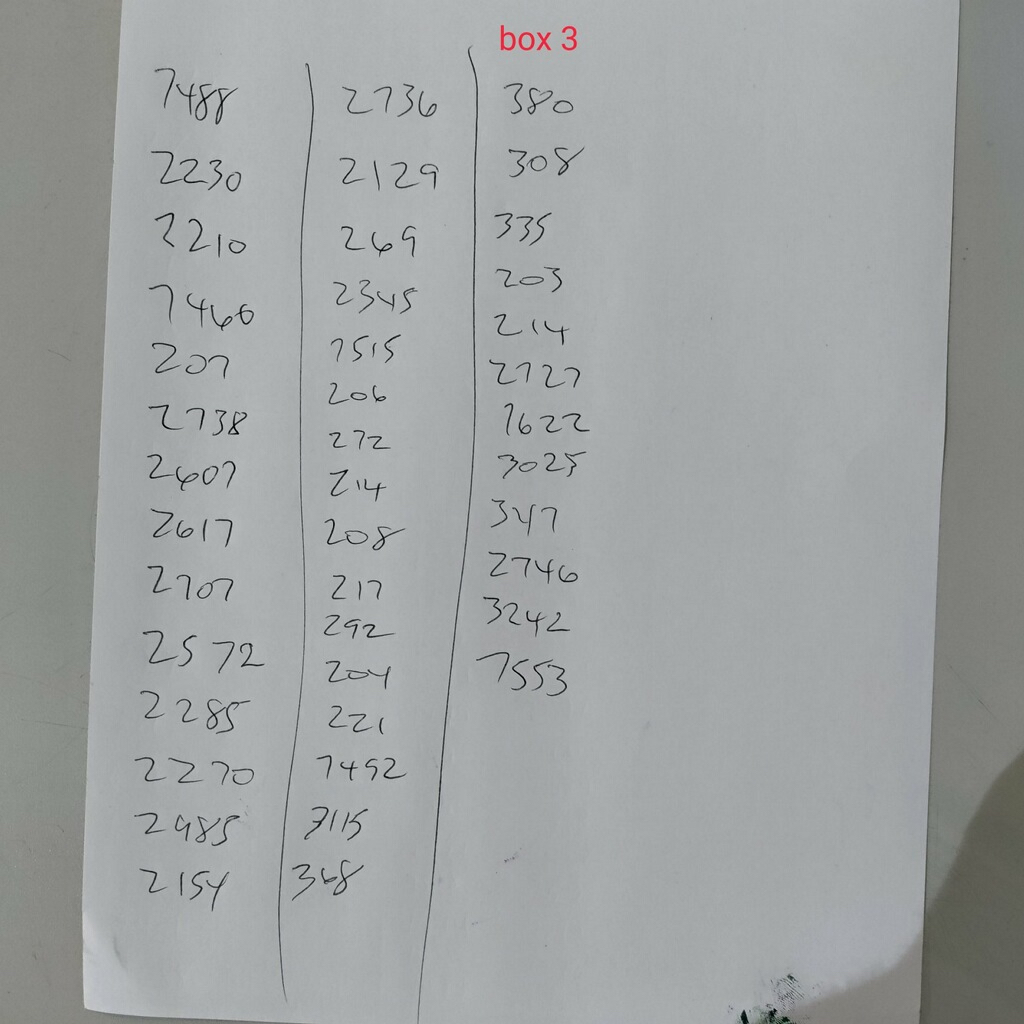 box 3
7488
2230
2210
7466
207
2738
2607
2617
2707
2572
2285
2270
2485
2154
2736
2129
269
2345
7515
206
272
214
208
217
292
204
221
7492
7115
368
380
308
335
203
214
2727
7622
3025
347
2746
3242
7553